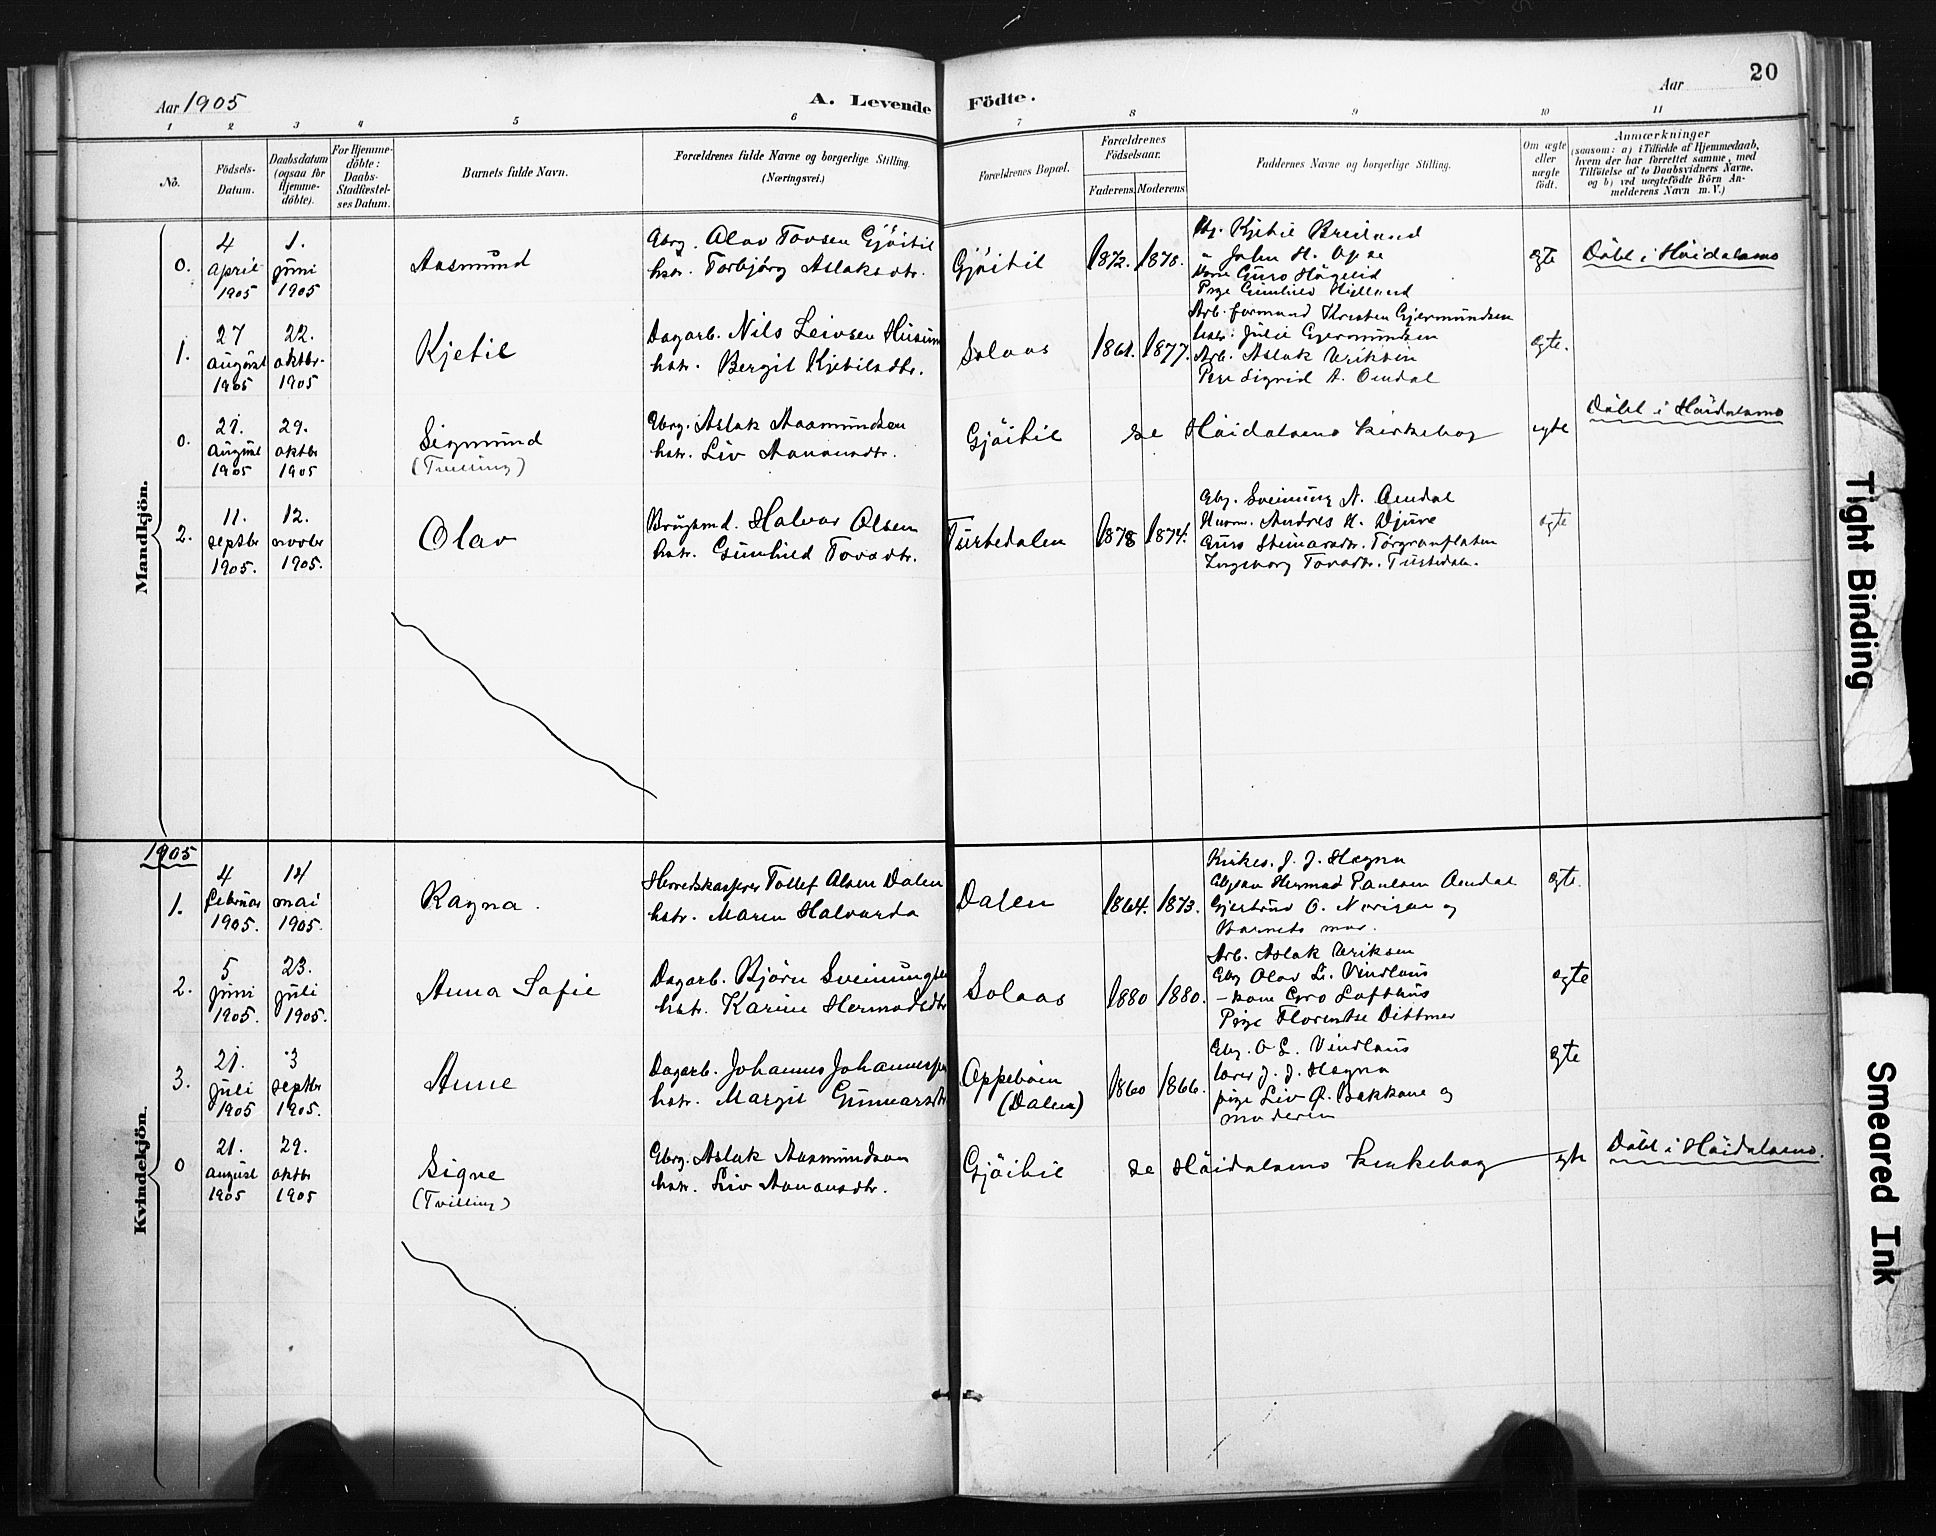 20
Aar 1905
A. Levende
Födte.
Aar
1 2 3 4 5 6 7 8 9 10 11
No.
Födsels-
Datum.
Daabsdatum
(ogsaa for
Hjemme-
döbte).
For Hjemme-
döbte:
Daabs-
Stadfæstel-
ses Datum.
Barnets fulde Navn.
Forældrenes fulde Navne og borgerlige Stilling.
(Næringsvei.)
Forældrenes Bopæl.
Forældrenes
Födselsaar.
Faderens.
Moderens.
Faddernes Navne og borgerlige Stilling.
Om ægte
eller
uægte
födt.
Anmærkninger
(saasom: a) i Tilfælde af Hjemmedaab,
hvem der har forrettet samme, med
Tilföielse af to Daabsvidners Navne,
og b) ved uægtefödte Börn An-
melderens Navn m. V.)
Mandkjön.
0.
4
april
1905
1.
juni
1905
Aasmund
Gbrg. Olav Tovsen Gjöitil
hstr. Torbjörg Aslaksdtr.
Gjöitil
1872. 1878.
Kjetil Breiland
John H.
Guro
Pige Gunhild
ægte
Döbt i Höidalsmo
1.
27
august
1905
22.
oktbr.
1905
Kjetil
Dagarb. Nils Leivsen Husum
hstr. Bergit Kjetilsdtr.
Solaas
1877.
Arb. formand Kresten Gjermundsen
hstr. Julie Gjermundsen
Arb. Aslak Eriksen
Pige Sigrid A. Omdal
ægte.
0.
21.
august
1905
29.
oktbr
1905
Sigmund
(Tvilling)
Gbrg. Aslak Aasmundsen
hstr. Liv Aanundtr.
Gjöitil
se Höidalsmo kirkebog
ægte
Döbt i Höidalsmo
2.
11.
septbr
1905.
12.
novbr
1905.
Olav
Brugsmd. Halvor Olsen
hstr. Gunhild Tovsdtr.
Turtedalen
1878 1874.
Gbg. Sveinung N. Omdal
Andres H. Djuve
Guro
Ingeborg Tovsdtr.
ægte
1905
Kvindekjön.
1.
4
februar
1905.
14
mai
1905.
Ragna.
Herredskasserer Tollef Olsen Dalen
hstr. Maren Halvorda
Dalen
1864. 1873.
Kirkes. J. J. Hægna
Paulsen Omdal
Gjertrud O. og
Barnets mor.
ægte.
2.
5
juni
1905.
23.
juli
1905.
Anna Sofie
Dagarb. Björn Sveinungsen
hstr. Karine Hermodsdtr
Solaas
1880 1880.
Arb. Aslak Eriksen
Gbg Olav L. Vindlaus
– kone Gro Lofthus
Pige Florentse Dittmer
ægte
3.
21.
juli
1905
3
septbr
1905.
Anne
Dagarb. Johannes Johannessen
hstr. Margit Gunnarsdtr
Oppeböen
(Dalen)
1860 1866.
Gbg. O. L. Vindlaus
lærer J. J. Hægna
pige Liv O. Bakkane og
moderen
ægte
0
21.
august
1905
29.
oktbr
1905
Signe
(Tvilling)
Gbrg. Aslak Aasmundson
hstr. Liv Aanundtr.
Gjöitil
se Höidalsmo kirkebog
ægte
Döbt i Höidalsmo.
Tight Binding
Smeared Ink